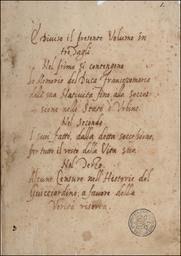 È Diuiso il presente Volume in
trè Fogli.
Nel primo si contengono
le Memorie del Duca Francesco maria
dalla sua Natiuità sino alla Succes-
sione nello Stato d'Urbino.
Nel Secondo
I suoi fatti, dalla detta successione,
per tutto il resto della Vita sua.
Nel Terzo
Alcune Censure nell'Historie del
Guicciardino, a fauore della
Verità